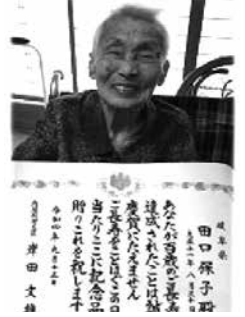 岐阜県
田口保子殿
あなたが百歳のご長寿を
達成されたことは誠に
慶賀にたえません
ご長寿をことほぐこの日に
当たりここに記念品を
贈りこれを祝します
令和四年九月十五日
内閣総理大臣 岸田文雄